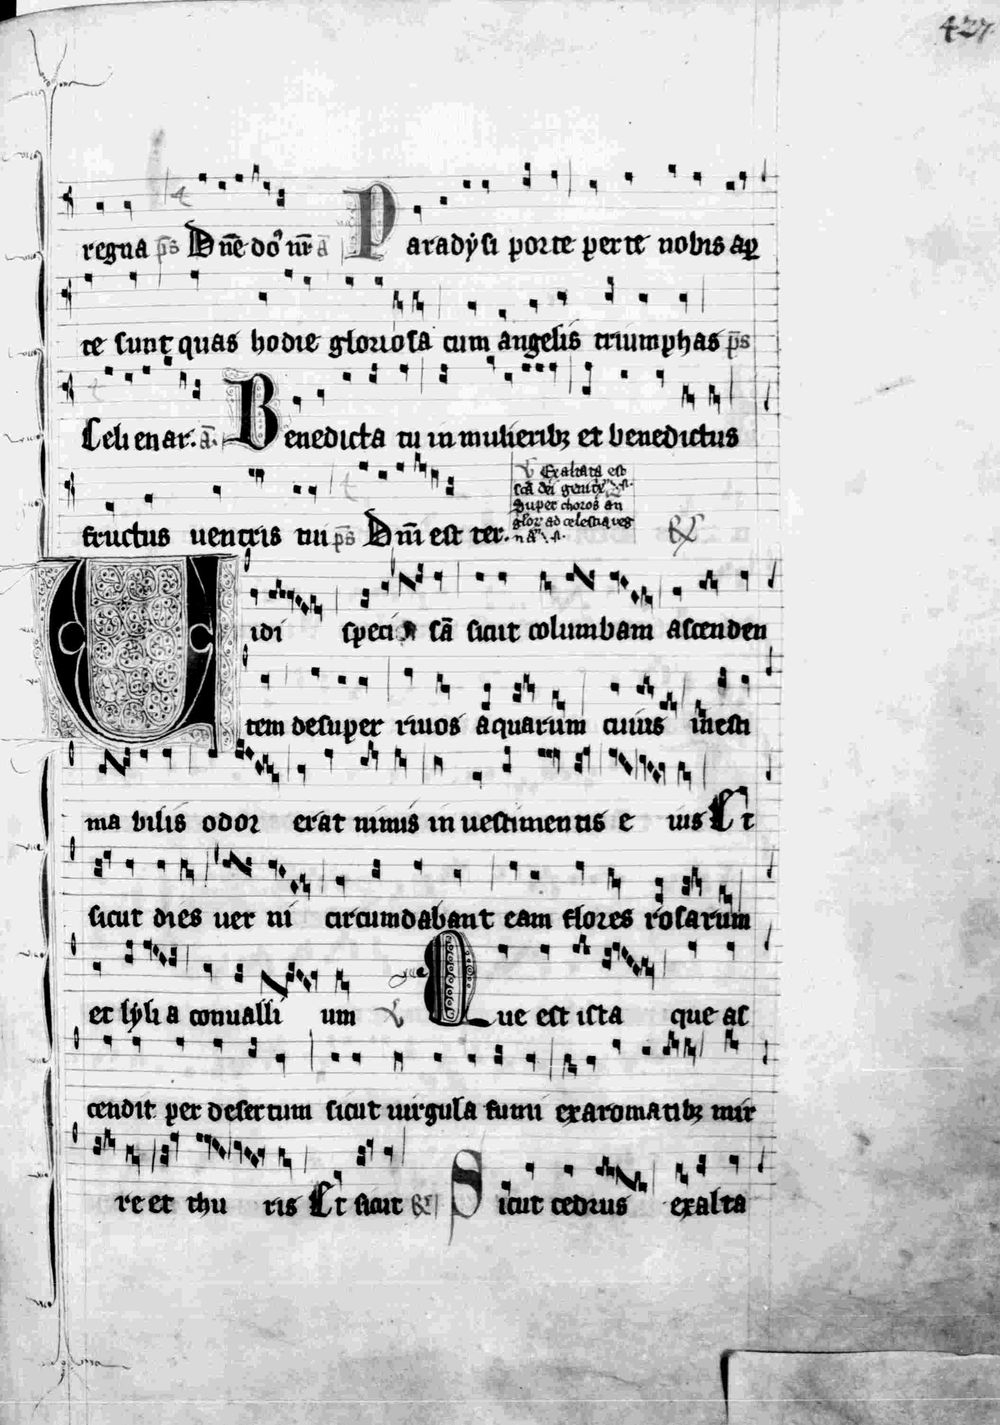 427
regna p̄s Dn̄e do⁹ nr̄ ā Paradysi porte per te nobis aꝑ
te sunt quas hodie gloriosa cum angelis triumphas p̄s
Celi enar. ā. Benedicta tu in mulieribꝫ et benedictus
fructus uentris tui p̄s Dn̄i est ter.
℣ Exaltata est
sc̄a dei genitx
Super choros an
glor ad celestia reg
R
Uidi speciosā sicut columbam ascenden
tem desuper riuos aquarum cuius inesti
mabilis odor erat nimis in uestimentis eius Et
sicut dies uerni circumdabant eam flores rosarum
et lylia conuallium ℣ Que est ista que as
cendit per desertum sicut uirgula fumi ex aromatibꝫ mir
re et thuris Et sicut R Sicut cedrus exalta